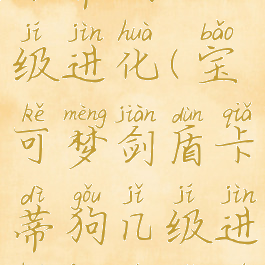 jí jìn huà bǎo
级进化(宝
kě mèng jiàn dùn qiǎ
可梦剑盾卡
dì gǒu jǐ jí jìn
蒂狗几级进